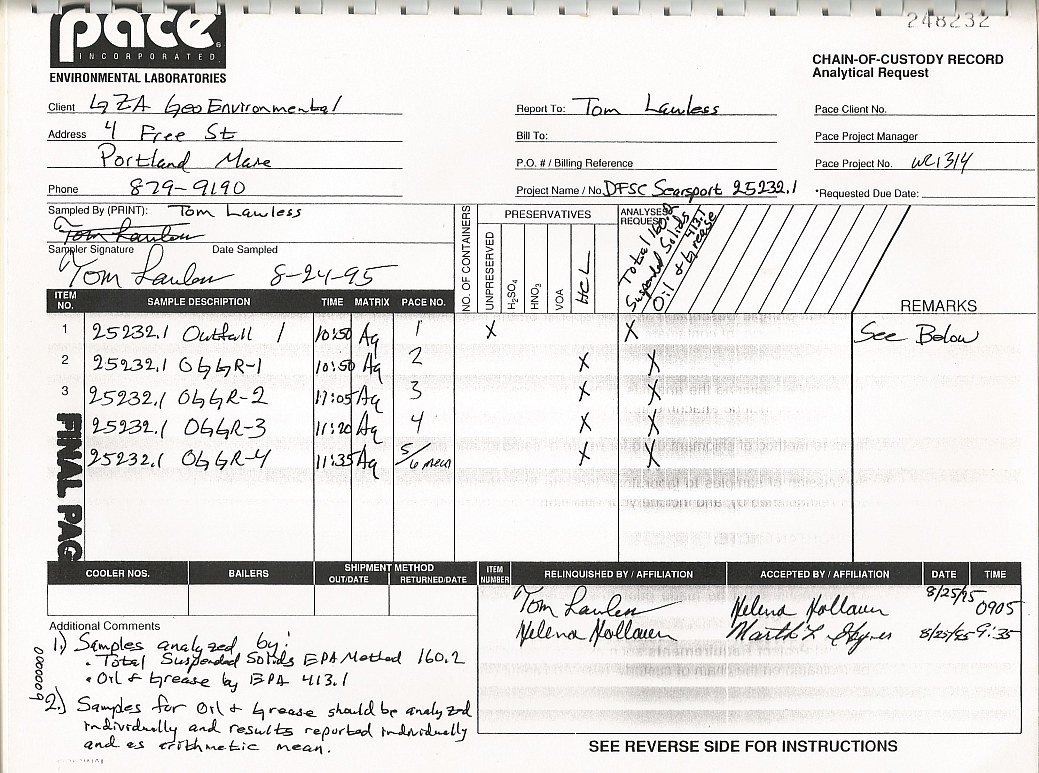 248232
pace
INCORPORATED
ENVIRONMENTAL LABORATORIES
CHAIN-OF-CUSTODY RECORD
Analytical Request
Client GZA GeoEnvironmental
Report To: Tom Lawless
Pace Client No.
Address 4 Free St
Bill To:
Pace Project Manager
Portland Maine
P.O. # / Billing Reference
Pace Project No. WR1314
Phone 879-9190
Project Name / No. DFSC Searsport 25232.1
*Requested Due Date:
Sampled By (PRINT): Tom Lawless
Tom Lawless
Sampler Signature Date Sampled
Tom Lawless 8-24-95
NO. OF CONTAINERS
PRESERVATIVES
UNPRESERVED
H2SO4
HNO3
VOA
HCL
ANALYSES
REQUEST
Total 160.2
Suspended Solids
413.1
Oil & Grease
ITEM NO. SAMPLE DESCRIPTION TIME MATRIX PACE NO. REMARKS
1 25232.1 Outfall 1 10:50 Aq 1 X X See Below
2 25232.1 OGGR-1 10:50 Aq 2 X X
3 25232.1 OGGR-2 11:05 Aq 3 X X
25232.1 OGGR-3 11:20 Aq 4 X X
25232.1 OGGR-4 11:35 Aq 5/6 mean X X
FINAL PAG
COOLER NOS. BAILERS SHIPMENT METHOD OUT/DATE RETURNED/DATE ITEM NUMBER RELINQUISHED BY / AFFILIATION ACCEPTED BY / AFFILIATION DATE TIME
Tom Lawless Helena Hollauer 8/25/95 0905
Helena Hollauer 8/25/95 9:35
Additional Comments
1.) Samples analyzed by:
• Total Suspended Solids EPA Method 160.2
• Oil & Grease by EPA 413.1
2.) Samples for Oil & Grease should be analyzed
individually and results reported individually
and as arithmetic mean.
SEE REVERSE SIDE FOR INSTRUCTIONS